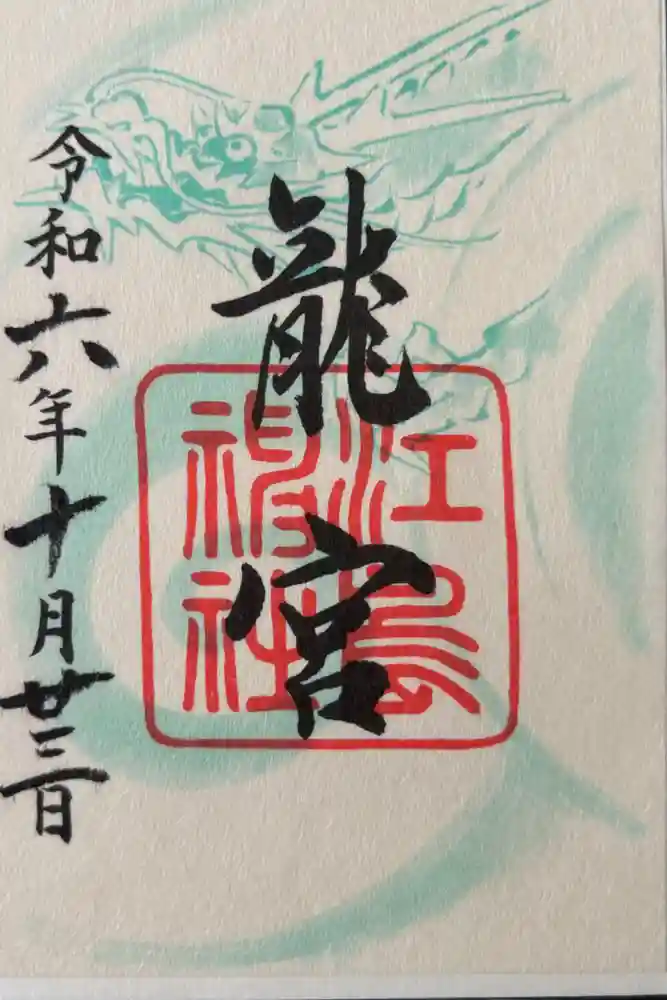 龍宮
江島神社
令和六年十月廿三日